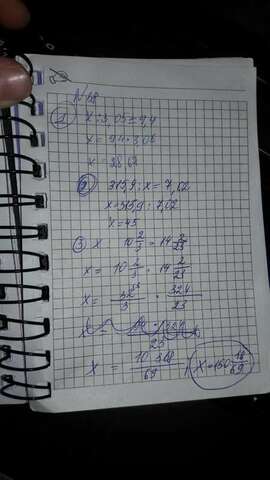 N 18
1 x : 3,05 = 9,4
x = 9,4 · 3,05
x = 28,67
2 315,9 : x = 7,02
x = 315,9 : 7,02
x = 45
3 x 10 2/3 = 14 2/23
x = 10 2/3 · 14 2/23
x = 32/3 · 324/23
x =
x = 10 368/69 x = 150 18/69